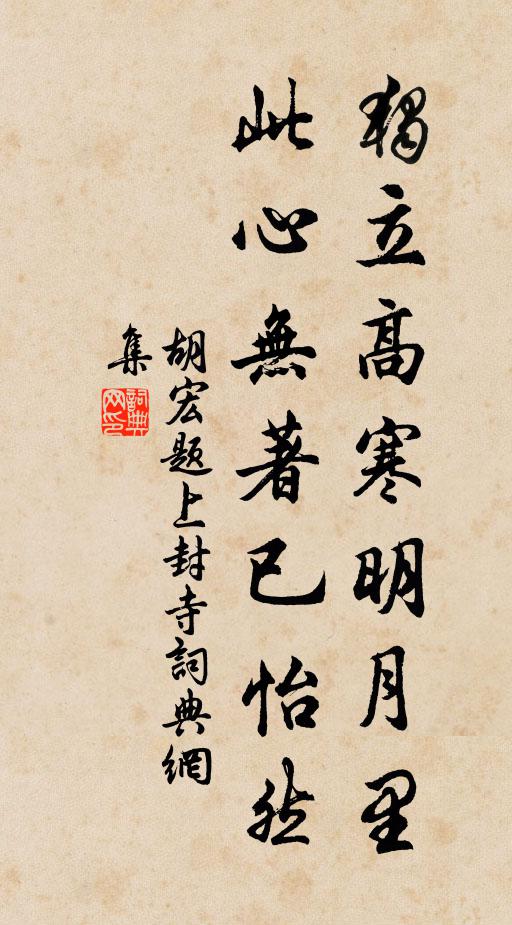 獨立高寒明月里
此心無著已怡然
胡宏題上封寺詞典網
集
詞典
网印